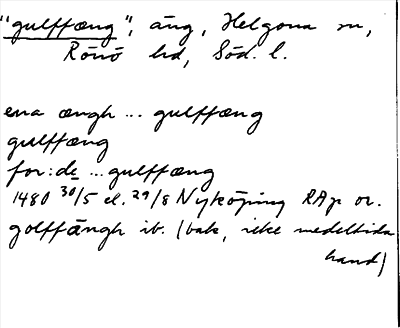 "gulffæng", äng, Helgona sn,
Rönö hd, Söd. l.
ena ængh ... gulffæng
gulffæng
for:de ... gulffæng
1480 30/5 el. 29/8 Nyköping RAp or.
golffängh ib. (bak, icke medeltida
hand)